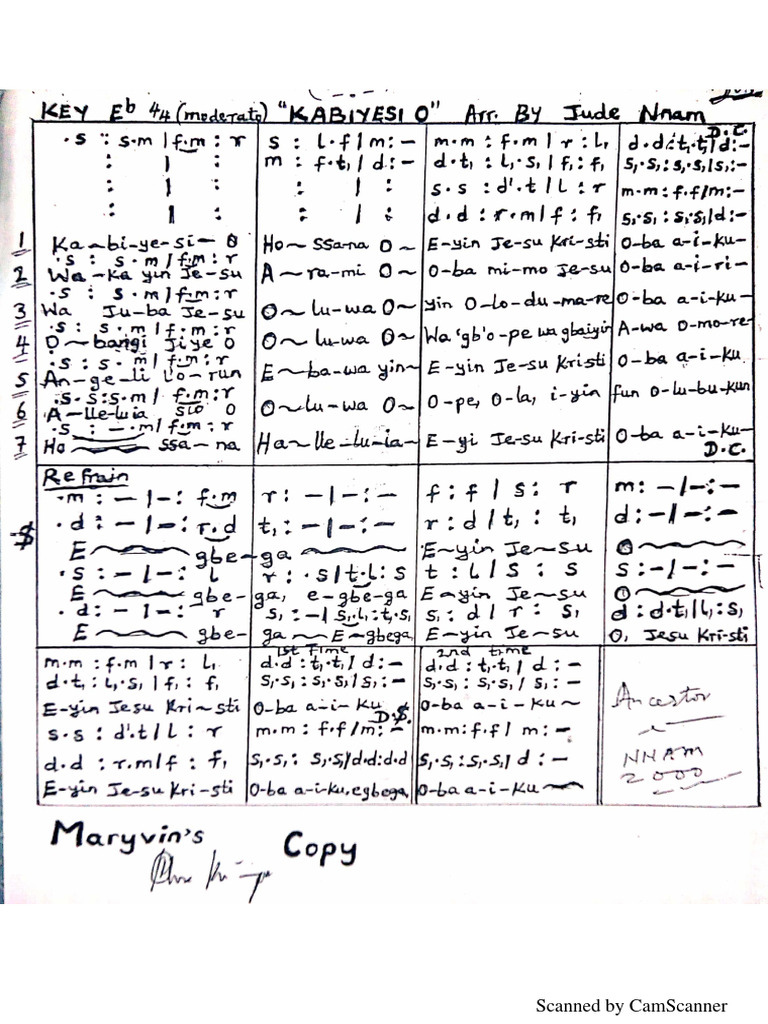 KEY Eb 4/4 (moderato) "KABIYESI O" Arr. By Jude Nnam
D.C.
.s : s.m / f.m : r s : l.f / m : – m.m : f.m / r : l, d.d : t,.t, / d : –
: / : m : f.t, / d : – d.t, : l,.s, / f, : f, s,.s, : s,.s, / s, : –
: / : : / : s.s : d'.t / l : r m.m : f.f / m : –
: / : : / : d.d : r.m / f : f, s,.s, : s,.s, / d : –
1 Ka~bi-ye-si- O Ho~ssa-na O~ E-yin Je-su Kri-sti O-ba a-i-ku-
.s : s.m / f.m : r
2 Wa-Ka yin Je-su A~ra-mi O~ O-ba mi-mo Je-su O-ba a-i-ri-
.s : s.m / f.m : r
3 Wa Ju-ba Je-su O~lu-wa O~ yin O-lo-du-ma-re O-ba a-i-ku-
.s : s.m / f.m : r
4 O~bangi Jiye O O~lu-wa O~ Wa 'gb'o-pe wa gbaiyin A-wa O-mo-re
.s : s.m / f.m : r
5 An-ge-li L'o-run E~ba-wa yin~ E-yin Je-su Kristi O-ba a-i-ku
.s.s : s.m / f.m : r
6 A-lle-luia O O~lu-wa O~ O-pe, O-la, i-yin fun O-lu-bu-kun
.s : – .m / f.m : r
7 Ho ssa-na Ha~lle-lu-ia~ E-yi Je-su Kri-sti O-ba a-i-ku-
D.C.
Refrain
.m : – / – : f.m r : – / – : – f : f / s : r m : – / – : –
.d : – / – : r.d t, : – / – : – r : d / t, : t, d : – / – : –
$
E~gbe-ga E~yin Je~su O~
.s : – / – : l r : .s / t.l : s t : l / s : s s : – / – : –
E~gbe- ga, e-gbe-ga E-yin Je-su O~
.d : – / – : r s, : – / s,.l, : t,.s, s, : d / r : s, d : d.t, / l, : s,
E~gbe- ga~E-gbega E-yin Je-su O, Jesu Kri-sti
1st Time 2nd time
m.m : f.m / r : l, d.d : t,.t, / d : – d.d : t,.t, / d : –
d.t, : l,.s, / f, : f, s,.s, : s,.s, / s, : – s,.s, : s,.s, / s, : –
E-yin Jesu Kri~sti O-ba a-i-Ku O-ba a-i-Ku~
D.$.
s.s : d'.t / l : r m.m : f.f / m : – m.m : f.f / m : –
d.d : r.m / f : f, s,.s, : s,.s, / d.d : d.d s,.s, : s,.s, / d : –
E-yin Je-su Kri-sti O-ba a-i-ku, egbega O-ba a-i-Ku~
Ancestor
NNAM
2000
Maryvin's Copy
Scanned by CamScanner